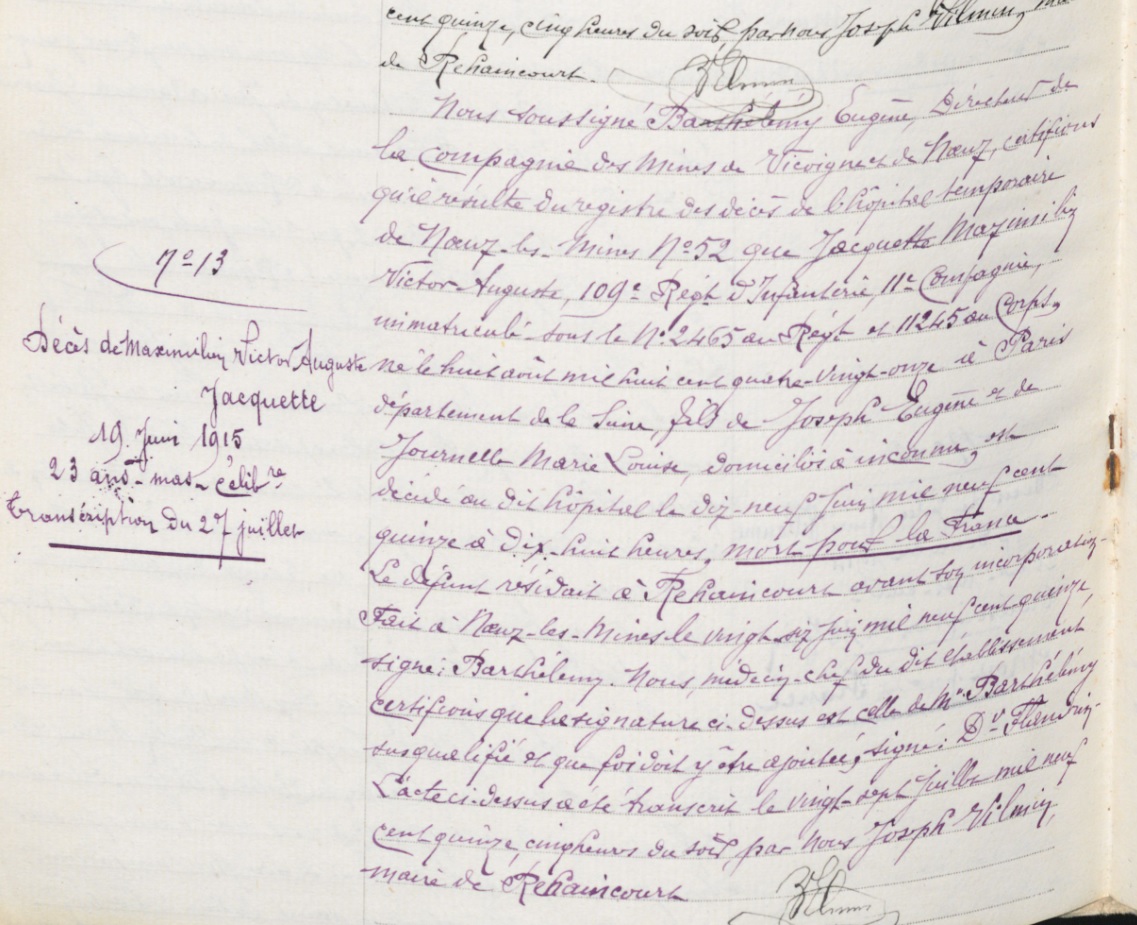 cent quinze, cinq heures du soir par nous Joseph Vilmin,
de Rehaincourt.
Vilmin
Nous soussigné Barthélémy Eugène, Directeur de
la Compagnie des Mines de Vicoigne et de Nœux, certifions
qu'il résulte du registre des décès de l'hôpital temporaire
de Nœux-les-Mines No 52 que Jacquette Maximilien
Victor Auguste, 109e Régt d'Infanterie, 11e Compagnie,
immatriculé sous le No 2465 au Régt et 11245 au Corps,
né le huit août mil huit cent quatre-vingt-onze à Paris
département de la Seine, fils de Joseph Eugène et de
Journelle Marie Louise, domiciliés à inconnu, est
décédé au dit hôpital le dix-neuf Juin mil neuf cent
quinze à dix-huit heures, mort pour la France.
Le défunt résidait à Rehaincourt avant son incorporation.
Fait à Nœux-les-Mines le vingt-six juin mil neuf cent quinze,
signé: Barthélemy. Nous, médecin-chef du dit établissement
certifions que la signature ci-dessus est celle de Mr Barthélémy
susqualifié et que foi doit y être ajoutée, signé: Dr Flandrin.
L'acte ci-dessus a été transcrit le vingt-sept juillet mil neuf
cent quinze, cinq heures du soir, par nous Joseph Vilmin,
maire de Rehaincourt
Vilmin
No 13
Décès de Maximilien Victor Auguste
Jacquette
19 Juin 1915
23 ans - mas - célibre
transcription du 27 juillet